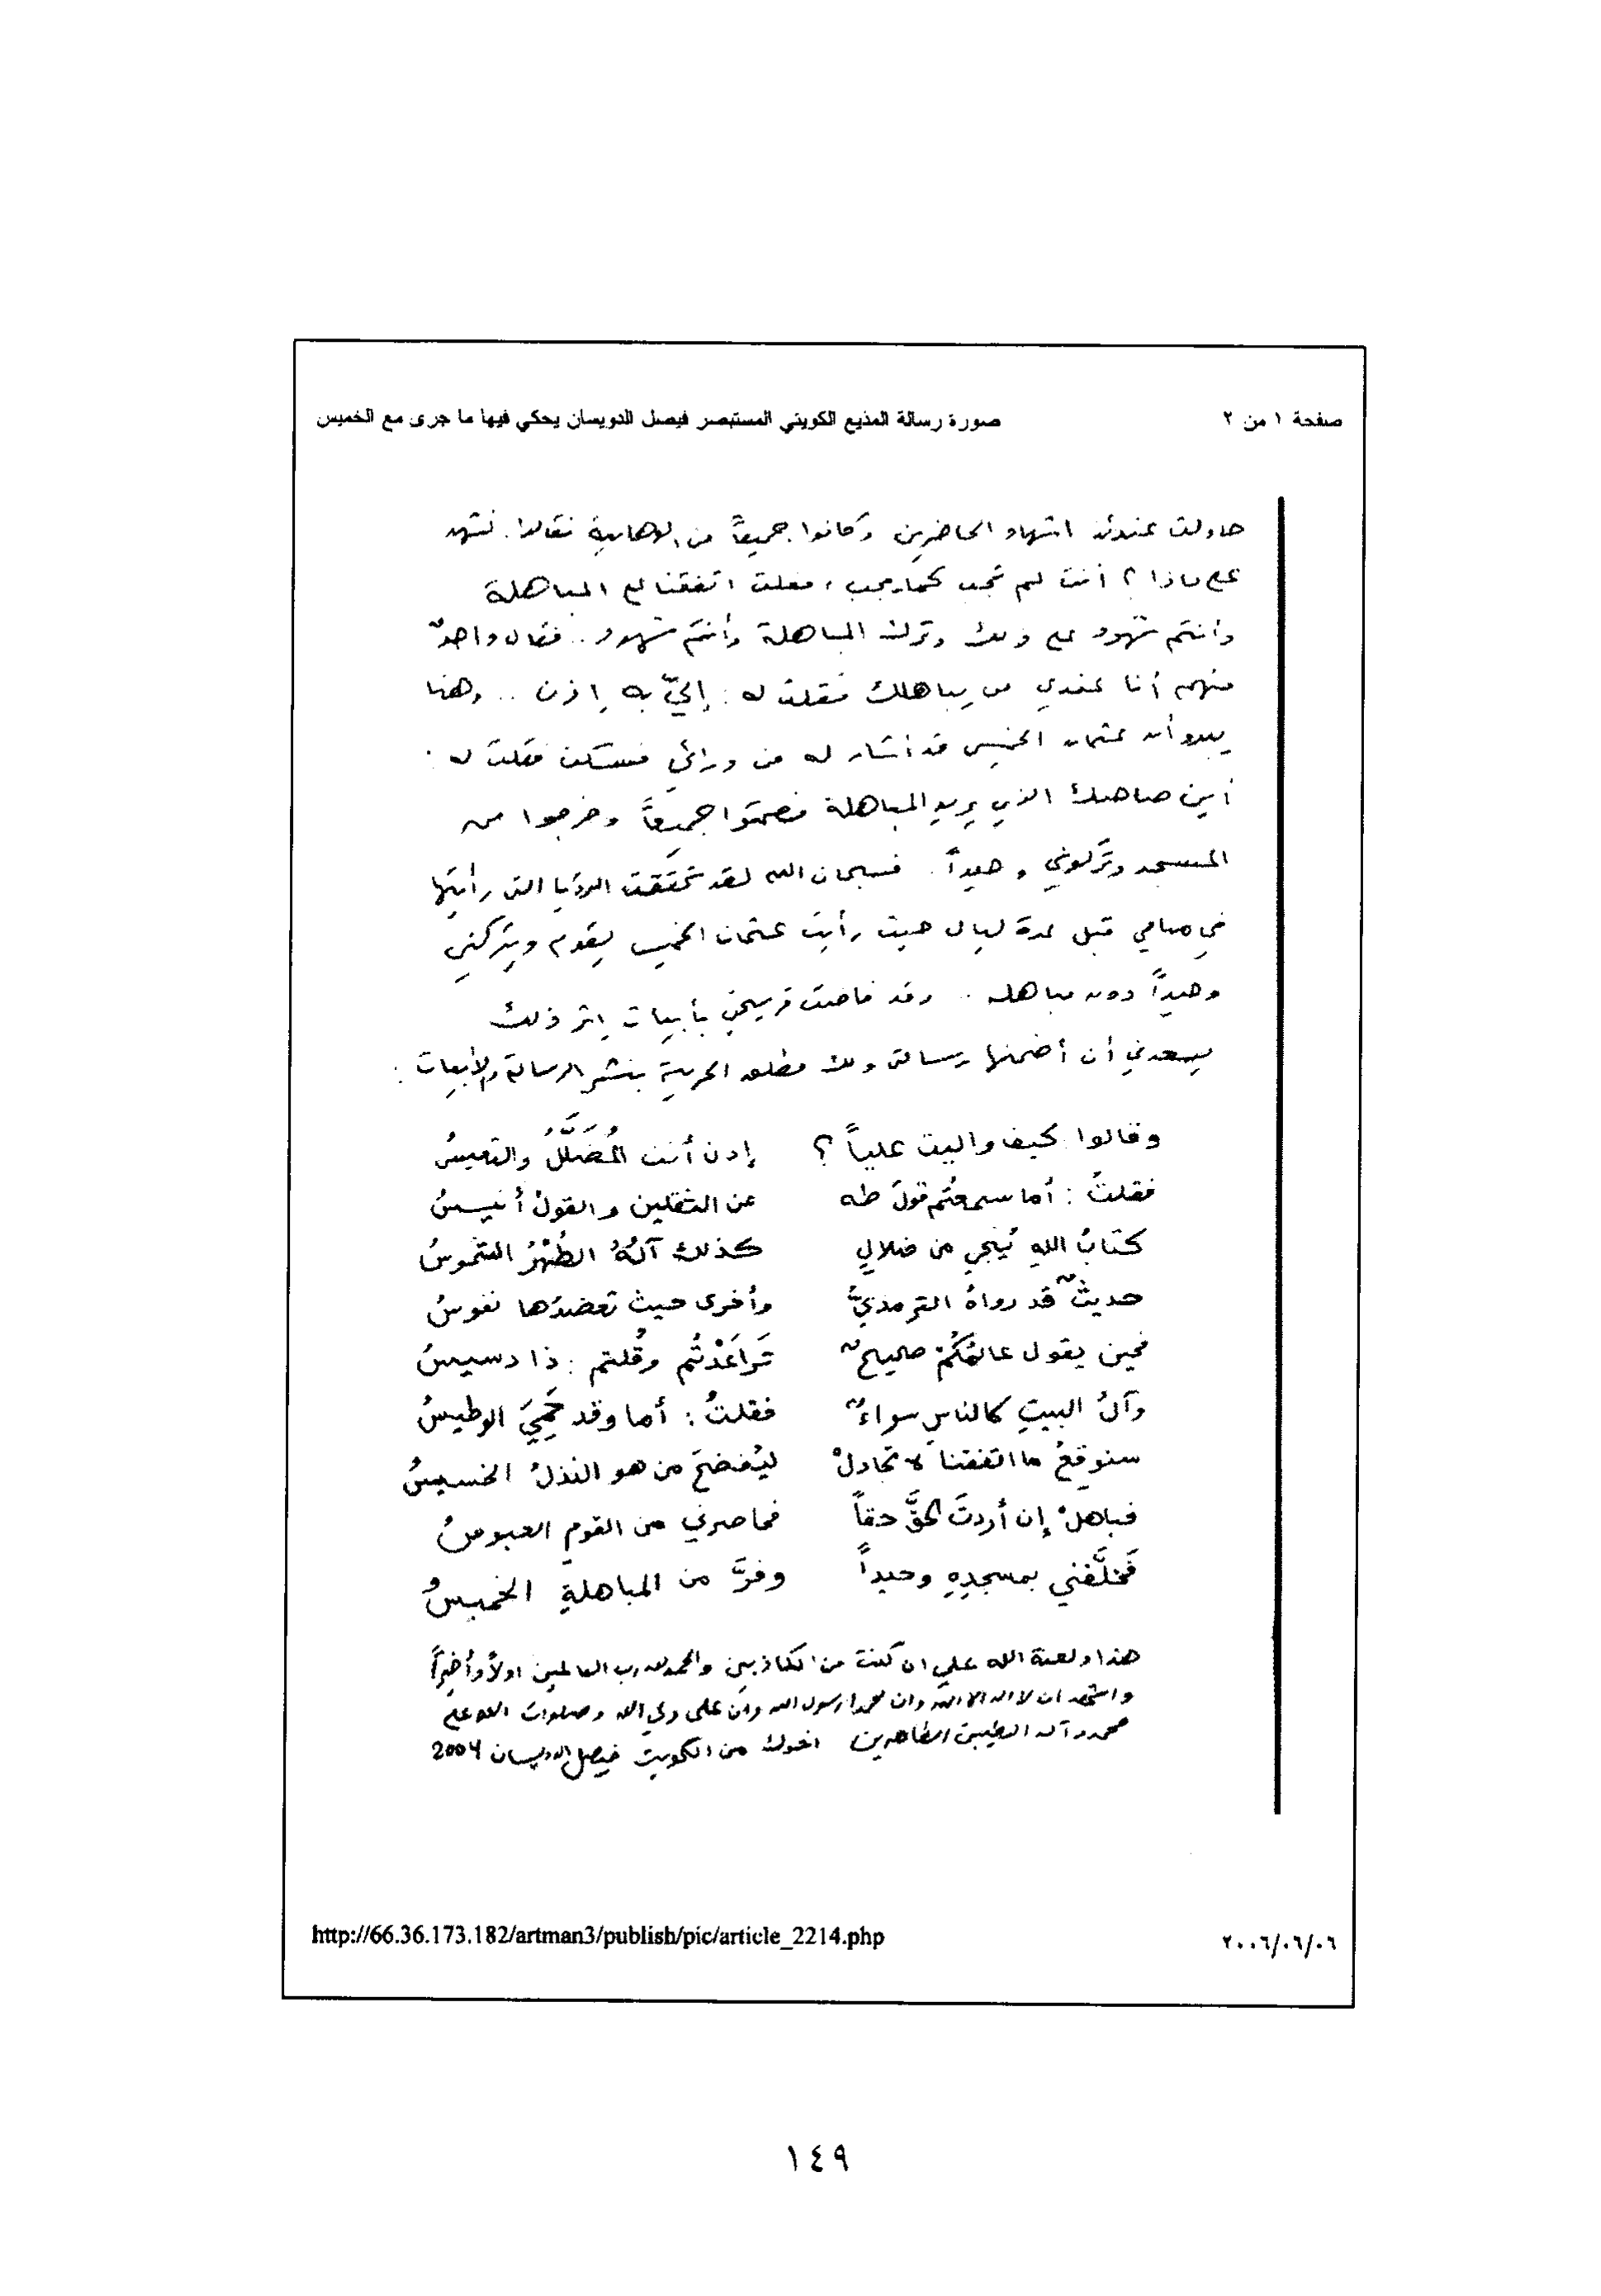 صفحة ١ من ٢
صورة رسالة المذيع الكويتي المستبصر فيصل الدويسان يحكي فيها ما جرى مع الخميس
حاولت عندئذ اشهاد الحاضرين وكانوا جميعاً من الوهابية فقالوا. نشهد
على ماذا ؟ أنت لم تجب كما يجب ، فقلت اتفقنا على المباهلة
وأنتم شهود على ذلك وترك المباهلة وأنتم شهود .. فقال واحدٌ
منهم أنا عندي من يباهلك فقلت له : إليّ به إذن .. وهنا
يبدو أن عثمان الخميس قد أشار له من ورائي فسكت فقلت له :
أين صاحبك الذي يريد المباهلة فصمتوا جميعاً وخرجوا من
المسجد وتَركوني وحيداً . فسبحان الله لقد تحَققت الرؤيا التي رأيتها
في منامي قبل عدة ليال حيث رأيت عثمان الخميس يقوم ويتركني
وحيداً دون مباهلة .. وقد فاضت قريحتي بأبيات إثر ذلك
يسعدني أن أضمنها رسالتي ولك مطلق الحرية بنشر الرسالة والأبيات :
وقالوا كيف واليت علياً ؟ إذن أنت المُضَلَّلُ والتعيسُ
فقلتُ : أما سمعتُم قولَ طه عن الثقلين والقولُ أنيسُ
كتابُ اللهِ يُنجي من ضلالٍ كذلك آلُهُ الطُهْرُ الشموسُ
حديثٌ قد رواهُ الترمذيُّ وأخرى حيث تعضدُها نفوسُ
فحين يقول عالمُكُمْ صحيحٌ تَراعَدْتُم وقُلتم : ذا دسيسُ
وآلُ البيتِ كالناسِ سواءٌ فقلتُ : أما وقد حَمِيَ الوطيسُ
سنوقعُ ما اتفقنا لا تجادلْ ليُفضحَ من هو النذلُ الخسيسُ
فباهلْ إن أردتَ الحقَّ حقاً فحاصرني من القومِ العبوسُ
فَخلَّفني بمسجدِهِ وحيداً وفرَّ من المباهلةِ الخميسُ
هذا ولعنة الله علي ان كنت من الكاذبين والحمد لله رب العالمين اولاً وأخيراً
واشهد ان لا اله الا الله وان محمدا رسول الله وان علي ولي الله وصلوات الله على
محمد وآله الطيبين الطاهرين اخوك من الكويت فيصل الدويسان
http://66.36.173.182/artman3/publish/pic/article_2214.php
٢٠٠٦/٠٦/٠٦
١٤٩